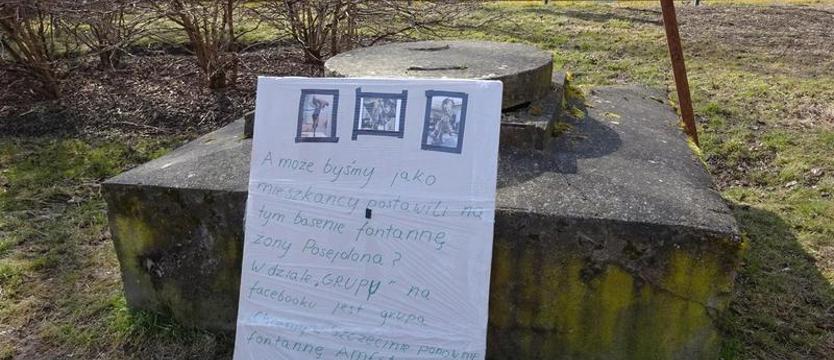 A może byśmy jako
mieszkańcy postawili na
tym basenie fontannę
żony Posejdona?
W dziale „GRUPY" na
facebooku jest grupa
Chcemy w Szczecinie ponownie
fontannę